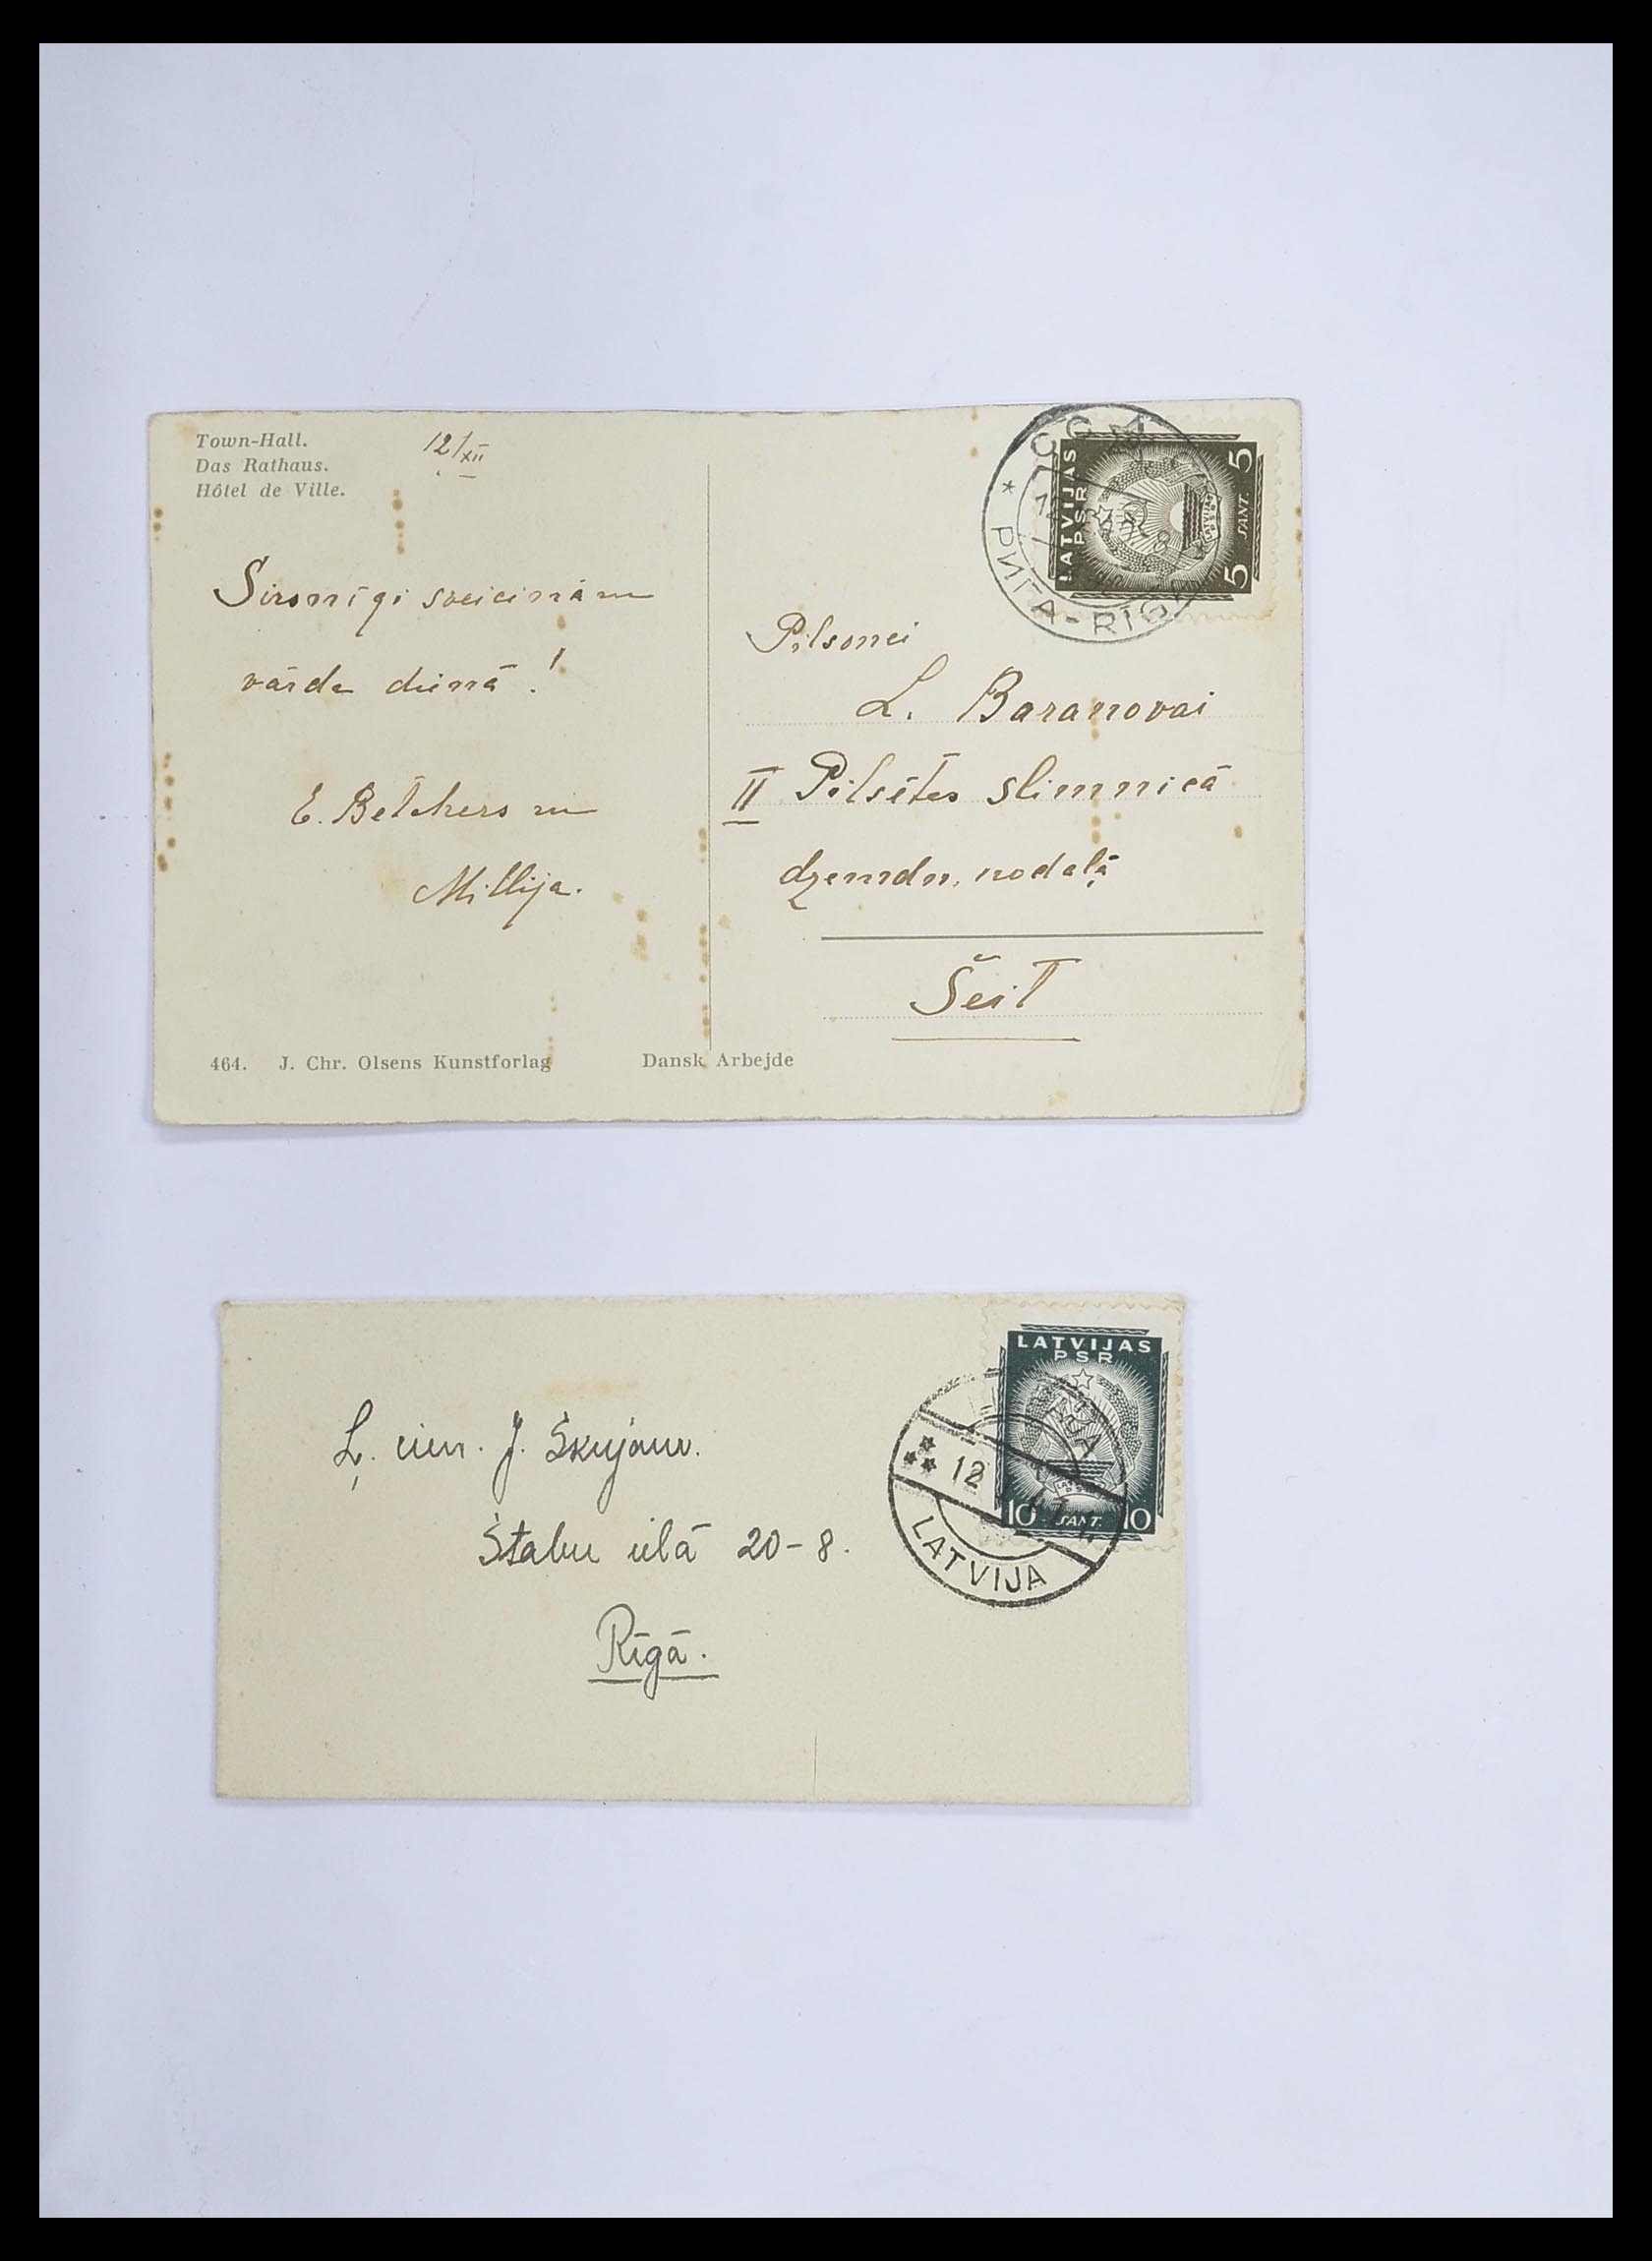 Town-Hall.
Das Rathaus.
Hôtel de Ville.
12/XII
Sirsnīgi sveicinām
vārda dienā!
E. Betchers un
Millija.
464. J. Chr. Olsens Kunstforlag
Dansk Arbejde
LATVIJAS
PSR
5 SANT. 5
РИГА-RĪGA
Pilsonei
L. Baranovai
II Pilsētas slimnīcā
dzemdn. nodaļā
Šeit
LATVIJAS
PSR
10 SANT. 10
12
LATVIJA
Ļ. cien. J. Skujauv.
Stabu ielā 20-8.
Rīgā.